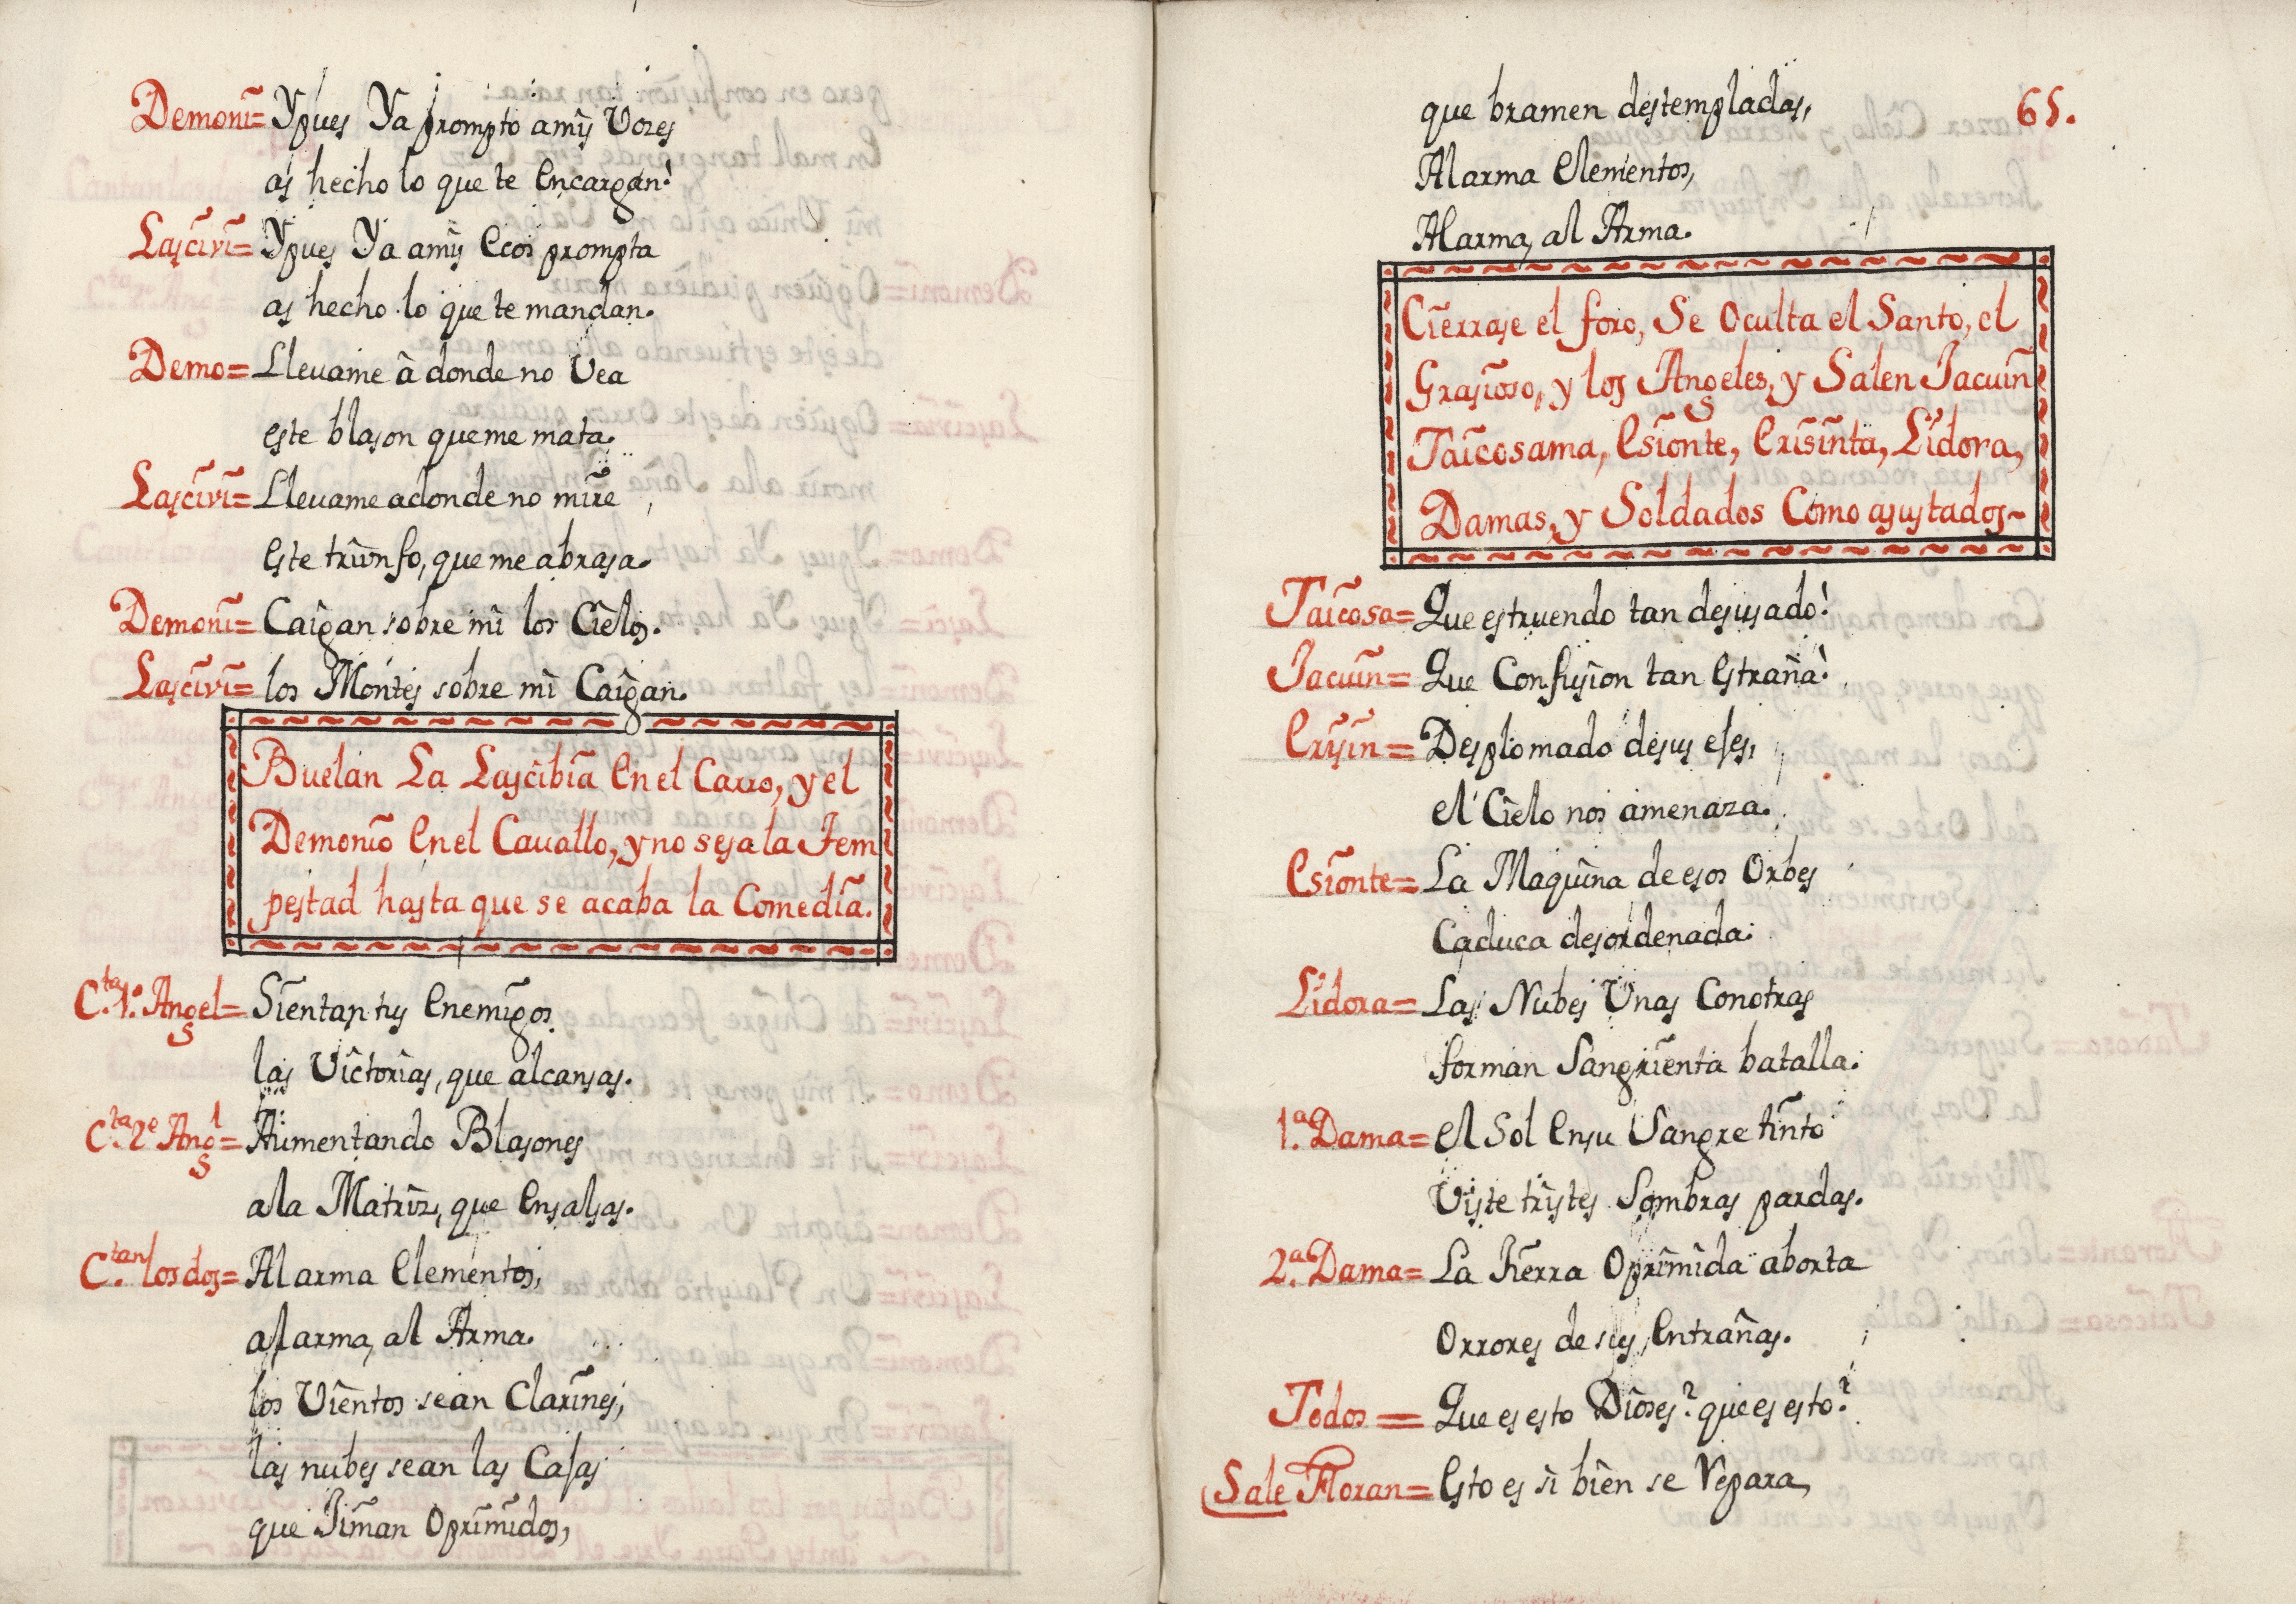 Demoni= Y pues Ya prompto amis Vozes
as hecho lo que te Encargan!
Lascivi= Y pues Ya amis Ecos prompta
as hecho lo que te mandan.
Demo= Lleuame à donde no Vea
este blason que me mata.
Lascivi= Lleuame adonde no mire
Este triunfo, que me abrasa.
Demoni= Caigan sobre mi los Cielos.
Lascivi= los Montes sobre mi Caigan.
Buelan La Lascibia En el Carro, y el
Demonio En el Cauallo, y no sesa la Tem
pestad hasta que se acaba la Comedia.
C.ta 1.º Angel= Sientan tus Enemigos
las Victorias, que alcansas.
C.ta 2.º Angl= Aumentando Blasones
ala Matriz, que Ensalsas.
C.tan los dos= Al arma Elementos,
al arma, al Arma.
los Vientos sean Clarines,
las nubes sean las Casas
que Jiman Oprimidos,
65.
que bramen destempladas,
Al arma Elementos,
Al arma, al Arma.
Cierrase el foro, Se Oculta el Santo, el
Grasioso, y los Angeles, y Salen Jacuin
Taicosama, Esionte, Crisinta, Lidora,
Damas, y Soldados Como asustados~
Taicosa= Que estruendo tan desusado!
Jacuin= Que Confusion tan Estraña!
Crisin= Desplomado desus eses,
el Cielo nos amenaza.
Esionte= La Maquina de esos Orbes
Caduca desordenada.
Lidora= Las Nubes Unas Conotras
forman Sangrienta batalla.
1.ª Dama= el Sol Ensu Sangre tinto
Viste tristes Sombras pardas.
2.ª Dama= La Tierra Oprimida aborta
Orrores de sus Entrañas.
Todos= Que es esto Dioses? que es esto?
Sale Floran= Esto es si bien se Repara,